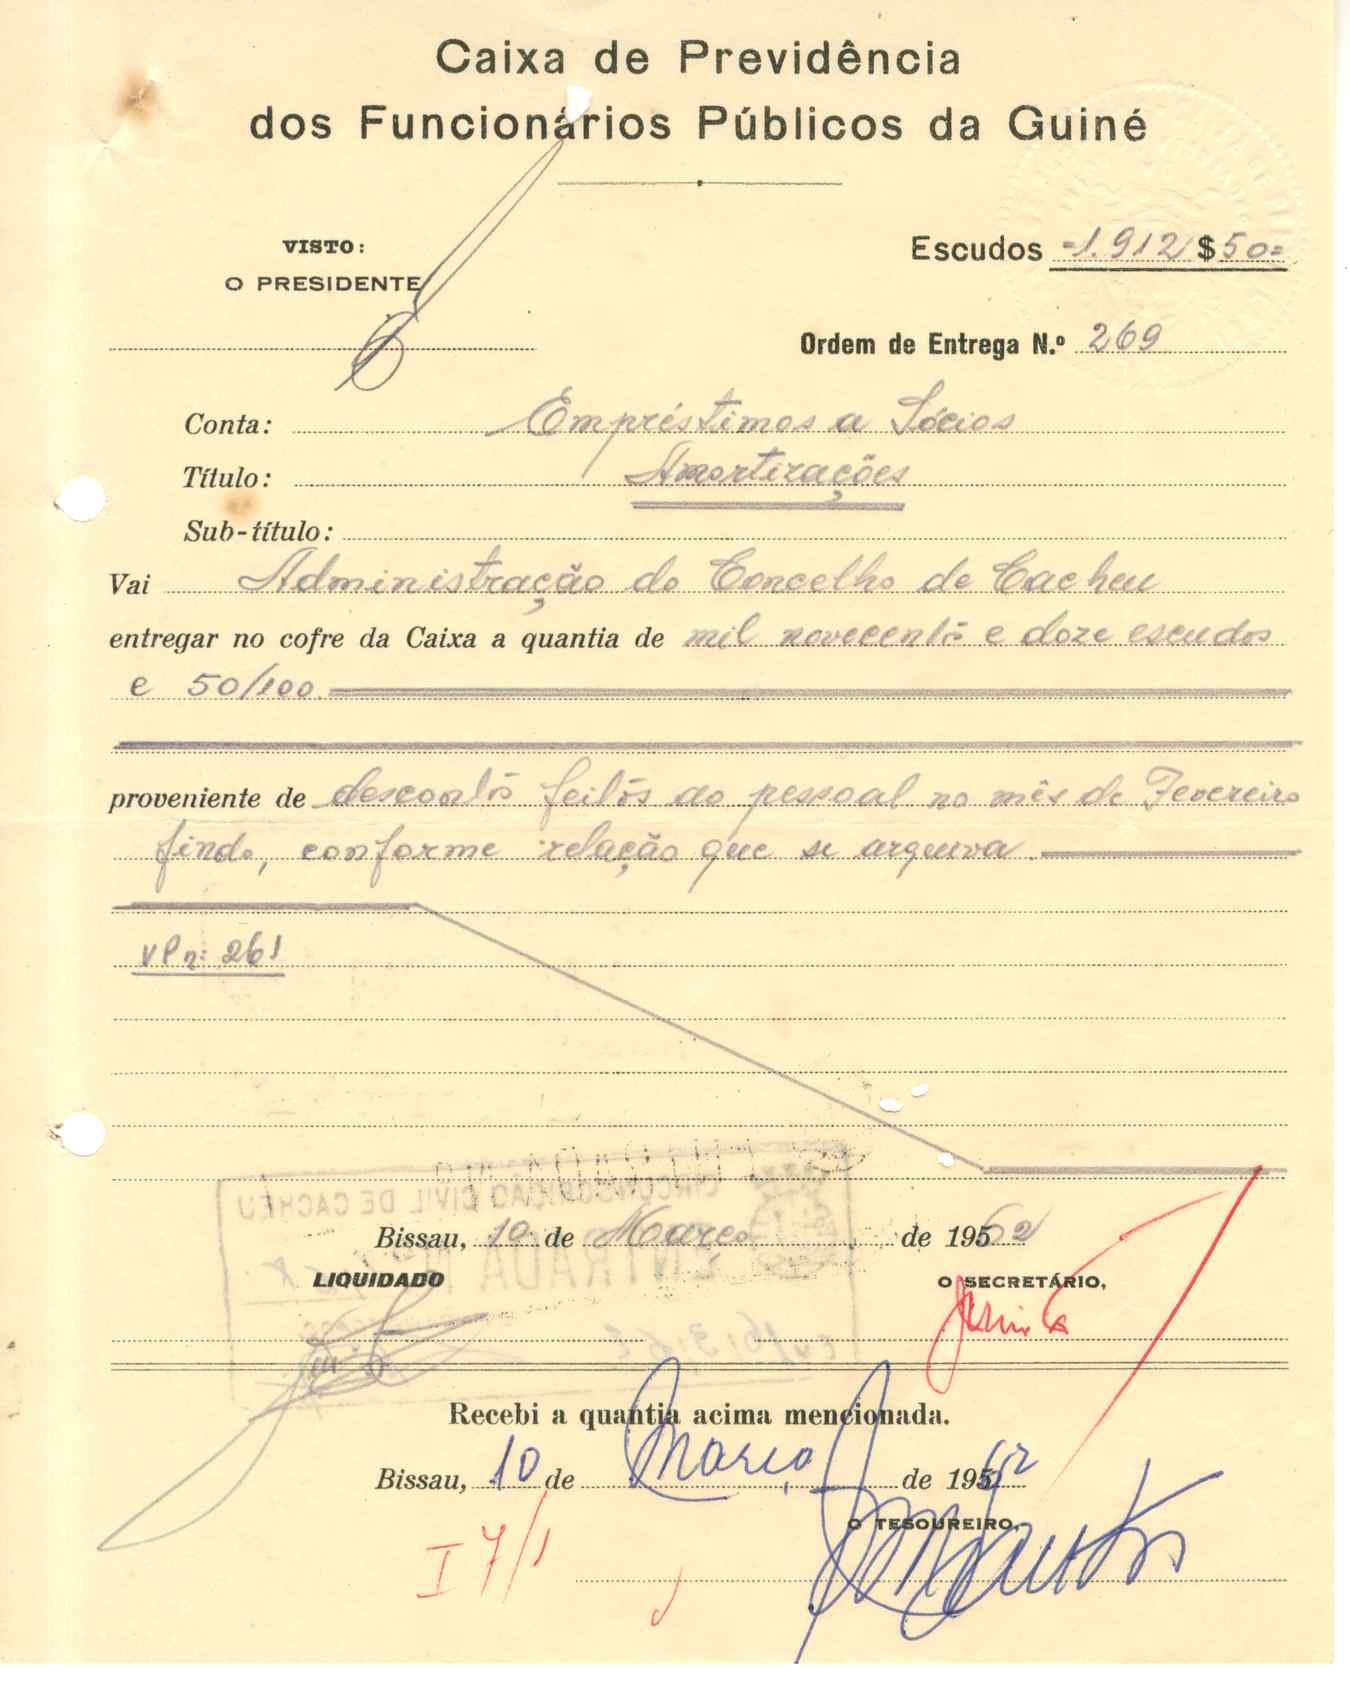 Caixa de Previdência
dos Funcionários Públicos da Guiné
VISTO:
O PRESIDENTE
Escudos =1.912$50=
Ordem de Entrega N.º 269
Conta: Empréstimos a Sócios
Título: Amortizações
Sub-título:
Vai Administração do Concelho de Cacheu
entregar no cofre da Caixa a quantia de mil novecentos e doze escudos
e 50/100
proveniente de descontos feitos ao pessoal no mês de Fevereiro
findo, conforme relação que se arquiva.
VP nº: 261
CIRCUNSCRIÇÃO CIVIL DE CACHEU
ENTRADA Nº
Bissau, 10 de Março de 1962
LIQUIDADO
O SECRETÁRIO,
Recebi a quantia acima mencionada.
Bissau, 10 de Março de 1962
O TESOUREIRO,
I 7/1